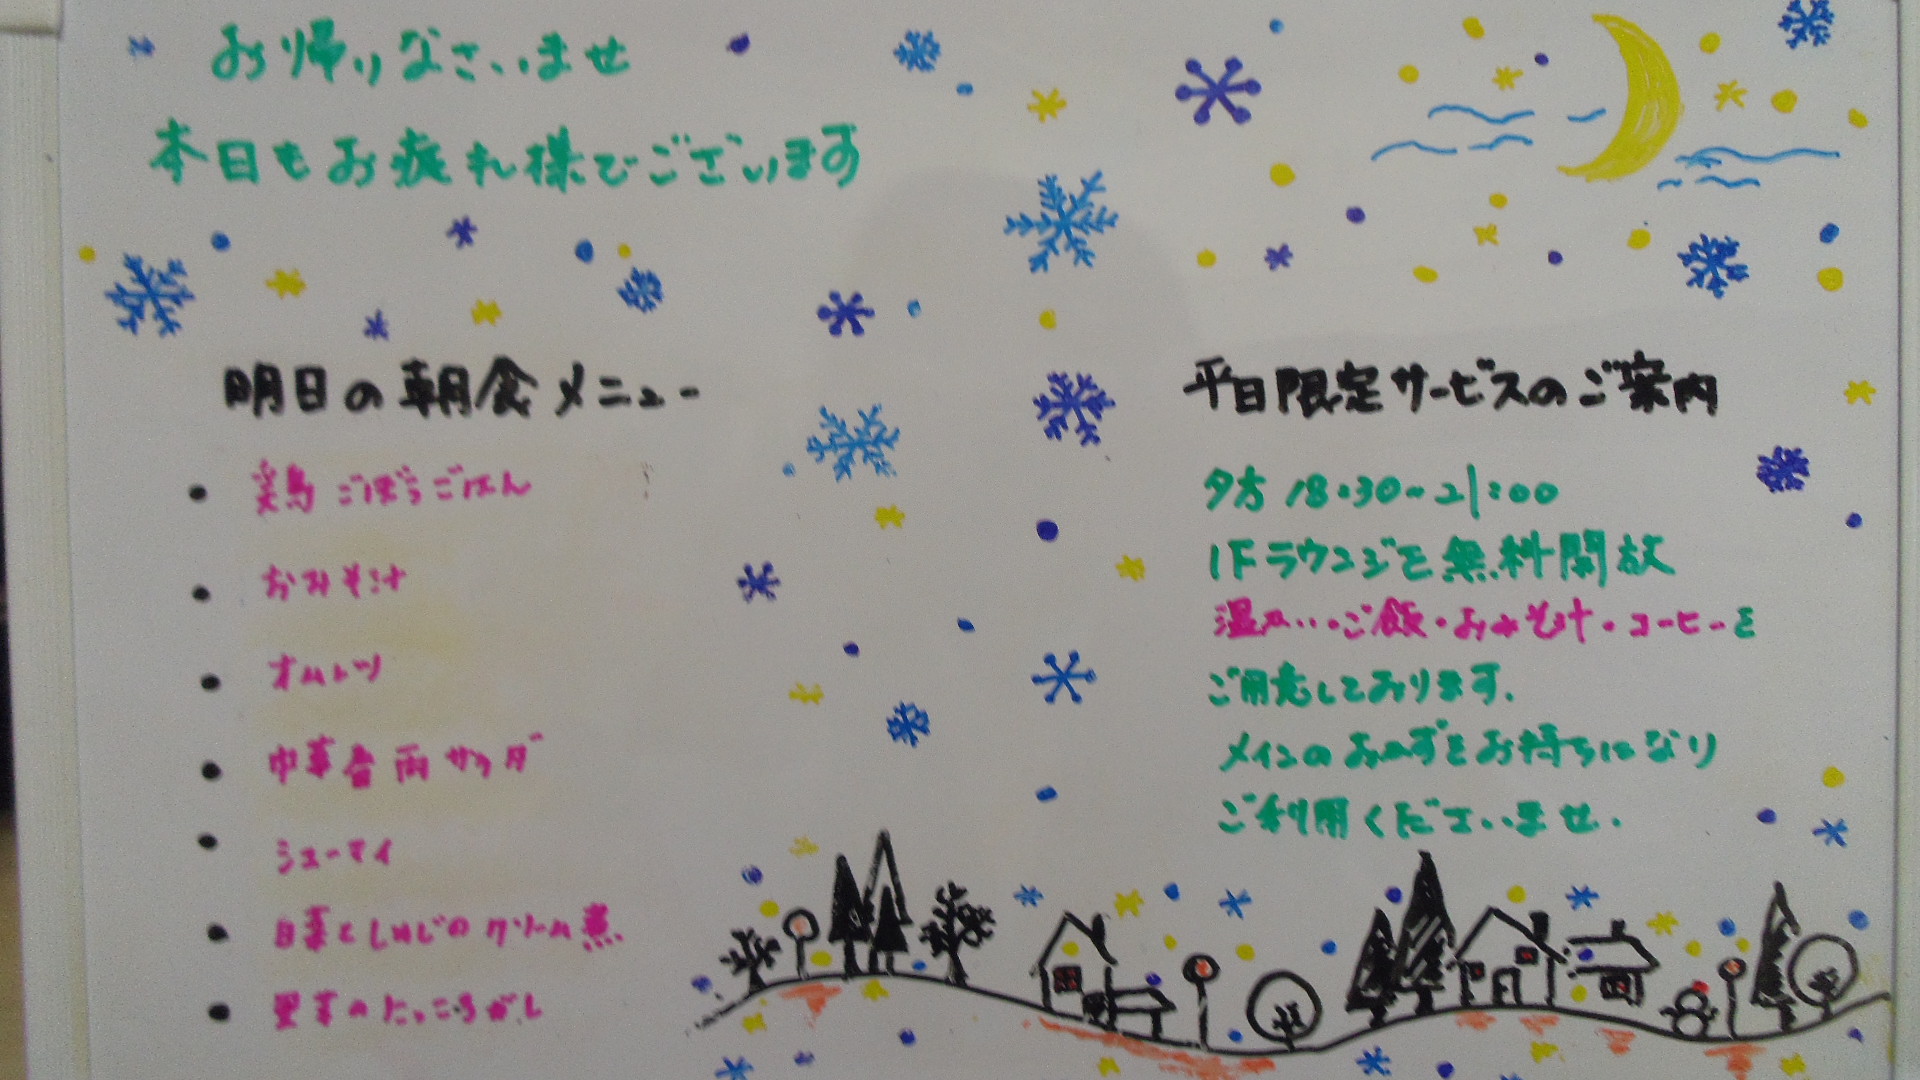 お帰りなさいませ
本日もお疲れ様でございます
明日の朝食メニュー
・鶏ごぼうごはん
・おみそ汁
・オムレツ
・中華春雨サラダ
・シューマイ
・白菜としめじのクリーム煮
・里芋のにっころがし
平日限定サービスのご案内
夕方 18:30~21:00
1Fラウンジを無料開放
温かい・ご飯・おみそ汁・コーヒーを
ご用意しております.
メインのおかずをお持ちになり
ご利用くださいませ.